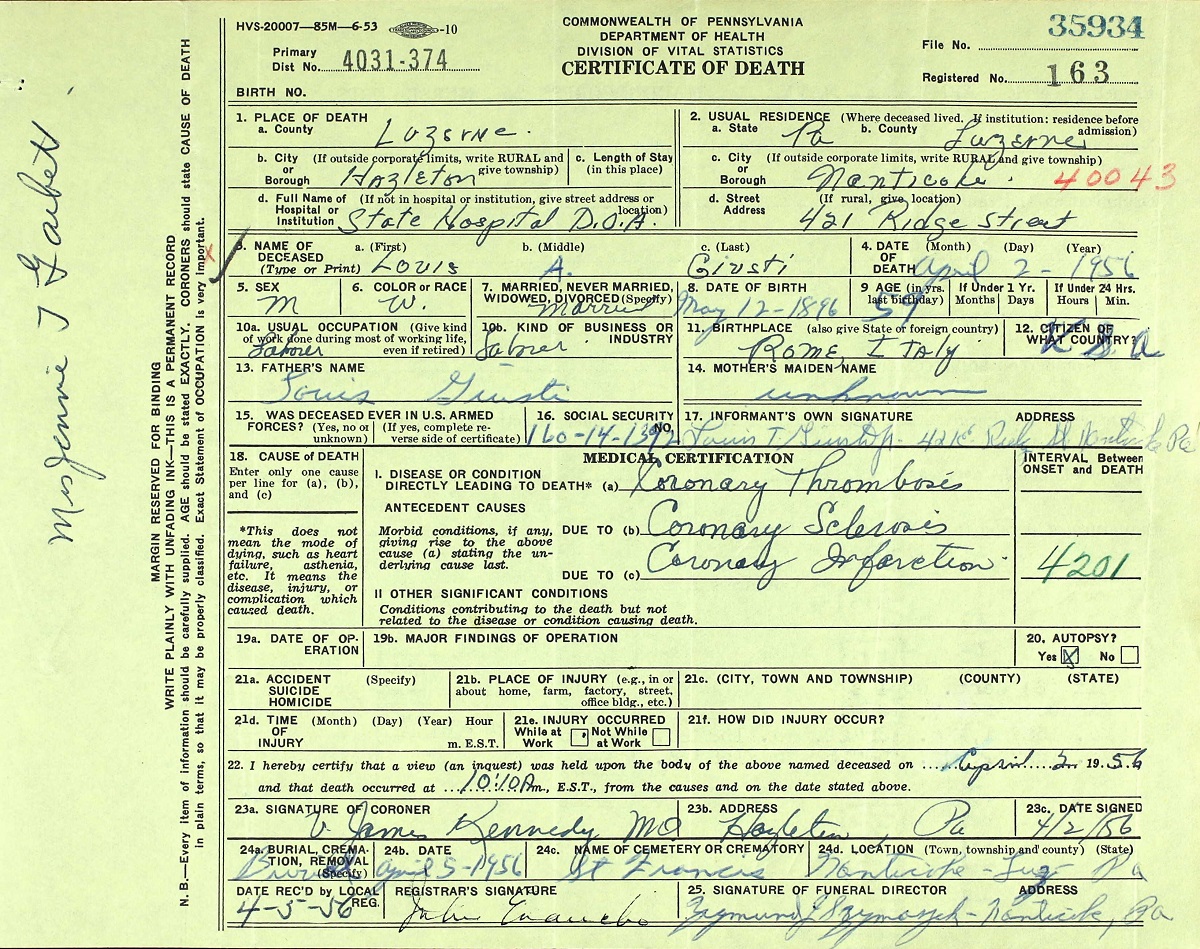 HVS-20007—85M—6-53 -10
COMMONWEALTH OF PENNSYLVANIA
DEPARTMENT OF HEALTH
DIVISION OF VITAL STATISTICS
CERTIFICATE OF DEATH
35934
File No.
Primary
Dist No. 4031-374
Registered No. 163
BIRTH NO.
1. PLACE OF DEATH
a. County Luzerne.
2. USUAL RESIDENCE (Where deceased lived. If institution: residence before admission)
a. State Pa b. County Luzerne
b. City or Borough (If outside corporate limits, write RURAL and give township) Hazleton
c. Length of Stay (in this place)
c. City or Borough (If outside corporate limits, write RURAL and give township) Nanticoke.
40043
d. Full Name of Hospital or Institution (If not in hospital or institution, give street address or location) State Hospital D.O.A.
d. Street Address (If rural, give location) 421 Ridge Street
3. NAME OF DECEASED (Type or Print)
a. (First) Louis
b. (Middle) A.
c. (Last) Giusti
4. DATE OF DEATH (Month) (Day) (Year) April 2 - 1956
5. SEX M
6. COLOR or RACE W.
7. MARRIED, NEVER MARRIED, WIDOWED, DIVORCED (Specify) Married
8. DATE OF BIRTH May 12-1896
9 AGE (in yrs. last birthday) 59
If Under 1 Yr. Months Days
If Under 24 Hrs. Hours Min.
10a. USUAL OCCUPATION (Give kind of work done during most of working life, even if retired) Laborer
10b. KIND OF BUSINESS OR INDUSTRY Laborer
11. BIRTHPLACE (also give State or foreign country) Rome, Italy
12. CITIZEN OF WHAT COUNTRY? U S A
13. FATHER'S NAME Louis Giusti
14. MOTHER'S MAIDEN NAME unknown
15. WAS DECEASED EVER IN U.S. ARMED FORCES? (Yes, no or unknown) (If yes, complete reverse side of certificate)
16. SOCIAL SECURITY NO. 160-14-1392
17. INFORMANT'S OWN SIGNATURE ADDRESS
Louis T. Nanticoke Pa
18. CAUSE OF DEATH
Enter only one cause per line for (a), (b), and (c)
MEDICAL CERTIFICATION
INTERVAL Between ONSET and DEATH
I. DISEASE OR CONDITION DIRECTLY LEADING TO DEATH* (a) Coronary Thrombosis
ANTECEDENT CAUSES
Morbid conditions, if any, giving rise to the above cause (a) stating the underlying cause last.
DUE TO (b) Coronary Sclerosis
DUE TO (c) Coronary Infarction
4201
*This does not mean the mode of dying, such as heart failure, asthenia, etc. It means the disease, injury, or complication which caused death.
II OTHER SIGNIFICANT CONDITIONS
Conditions contributing to the death but not related to the disease or condition causing death.
19a. DATE OF OPERATION
19b. MAJOR FINDINGS OF OPERATION
20. AUTOPSY?
Yes X No
21a. ACCIDENT SUICIDE HOMICIDE (Specify)
21b. PLACE OF INJURY (e.g., in or about home, farm, factory, street, office bldg., etc.)
21c. (CITY, TOWN AND TOWNSHIP) (COUNTY) (STATE)
21d. TIME OF INJURY (Month) (Day) (Year) Hour m. E.S.T.
21e. INJURY OCCURRED While at Work Not While at Work
21f. HOW DID INJURY OCCUR?
22. I hereby certify that a view (an inquest) was held upon the body of the above named deceased on April 2 1956
and that death occurred at 10:10Am., E.S.T., from the causes and on the date stated above.
23a. SIGNATURE OF CORONER James Kennedy MD
23b. ADDRESS Hazleton, Pa
23c. DATE SIGNED 4/2/56
24a. BURIAL, CREMATION, REMOVAL (Specify) Burial
24b. DATE April 5-1956
24c. NAME OF CEMETERY OR CREMATORY St Francis
24d. LOCATION (Town, township and county) (State) Nanticoke - Luz Pa
DATE REC'D BY LOCAL REG. 4-5-56
REGISTRAR'S SIGNATURE
25. SIGNATURE OF FUNERAL DIRECTOR ADDRESS
Nanticoke, Pa
MARGIN RESERVED FOR BINDING
WRITE PLAINLY WITH UNFADING INK—THIS IS A PERMANENT RECORD
N. B.—Every item of information should be carefully supplied. AGE should be stated EXACTLY. CORONERS should state CAUSE OF DEATH
in plain terms, so that it may be properly classified. Exact Statement of OCCUPATION is very important.
Mrs Jennie T